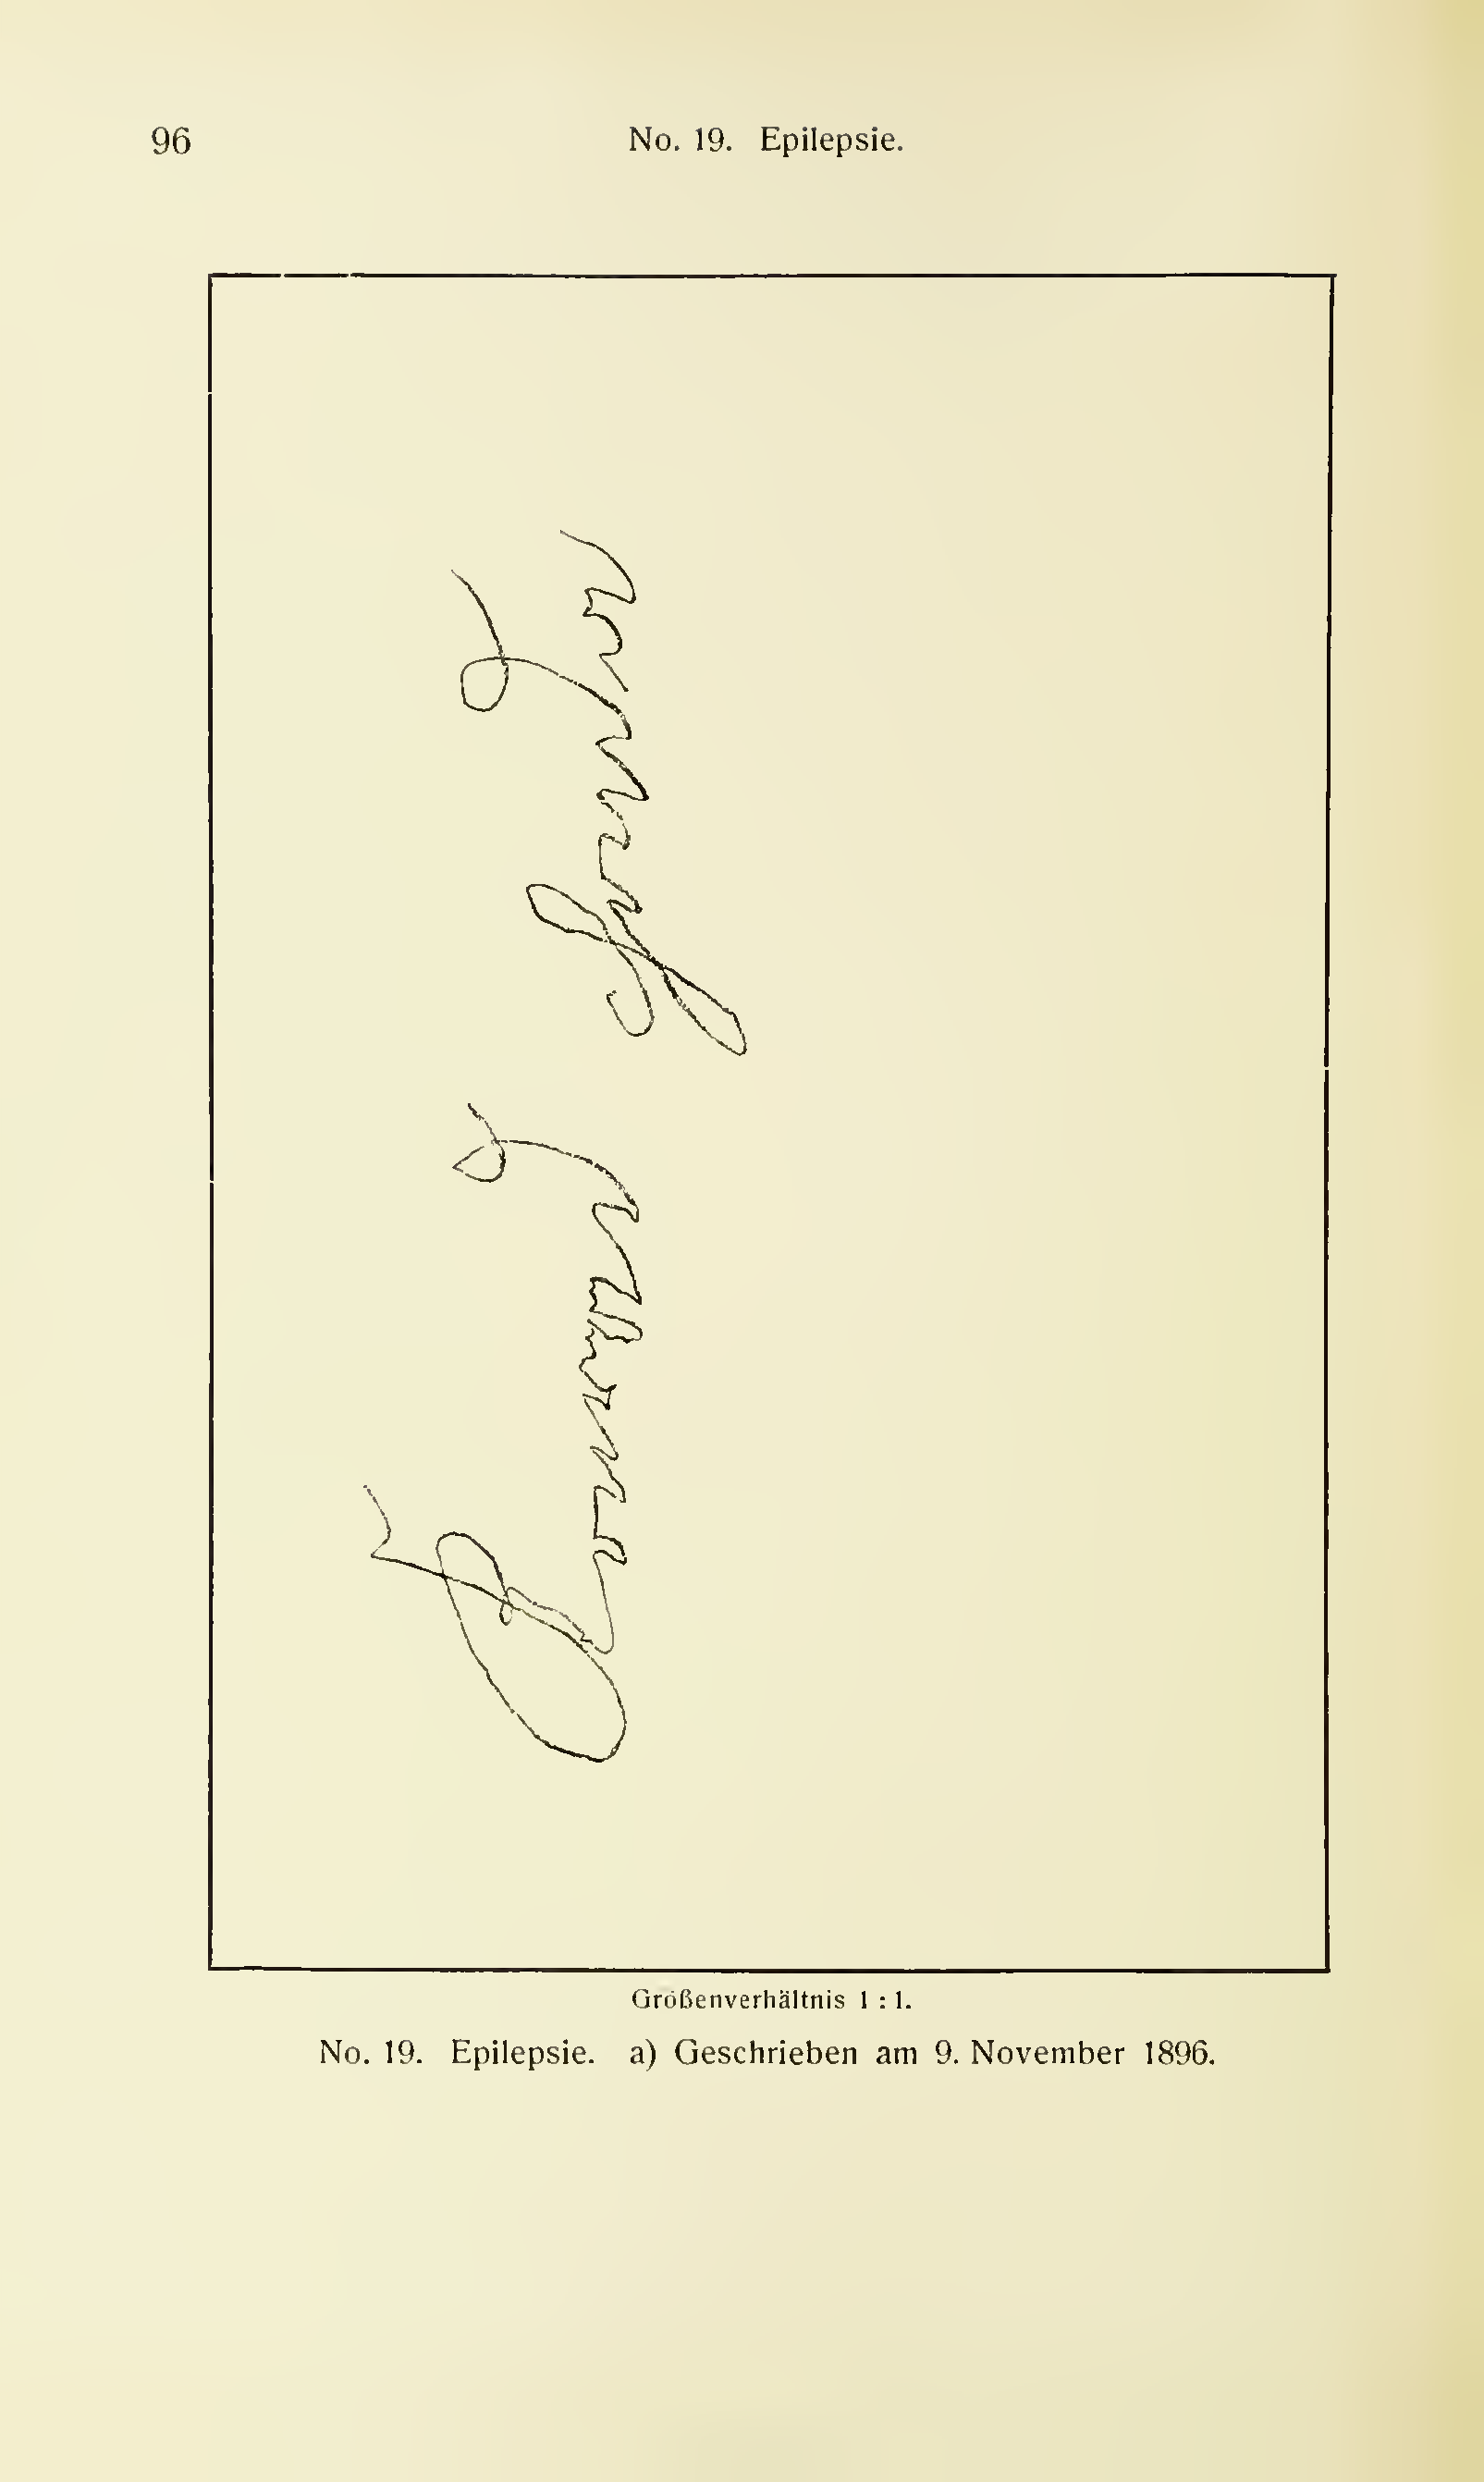 96
No. 19. Epilepsie.
Größenverhältnis 1 : 1.
No. 19. Epilepsie. a) Geschrieben am 9. November 1896.